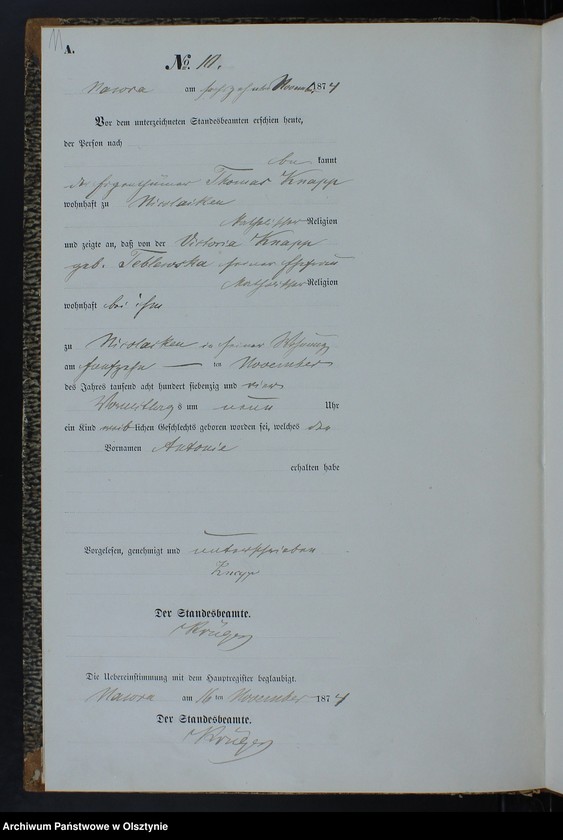 11
A.
No. 10.
Nawra am sechszehnten November 1874
Vor dem unterzeichneten Standesbeamten erschien heute,
der Person nach
be kannt
der Eigenthümer Thomas Knapp
wohnhaft zu Nicolaiken
katholischer Religion
und zeigte an, daß von der Victoria Knapp
geb. Teblewska seiner Ehefrau
katholischer Religion
wohnhaft bei ihm
zu Nicolaiken in seiner Wohnung
am fünfzehn ten November
des Jahres tausend acht hundert siebenzig und vier
Vormittags um neun Uhr
ein Kind weib lichen Geschlechts geboren worden sei, welches den
Vornamen Antonie
erhalten habe
Vorgelesen, genehmigt und unterschrieben
Knapp
Der Standesbeamte.
Krüger
Die Uebereinstimmung mit dem Hauptregister beglaubigt.
Nawra am 16 ten November 1874
Der Standesbeamte.
Krüger
Archiwum Państwowe w Olsztynie